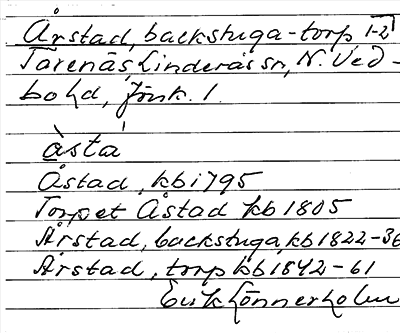 Årstad, backstuga-torp, 1-2
Tarenäs, Linderås sn, N. Ved-
bo hd, Jönk. l.
åsta
Åstad, kb 1795
Torpet Åstad kb 1805
Årstad, backstuga, kb 1822-36
Årstad, torp kb 1842-61
Erik Lönnerholm